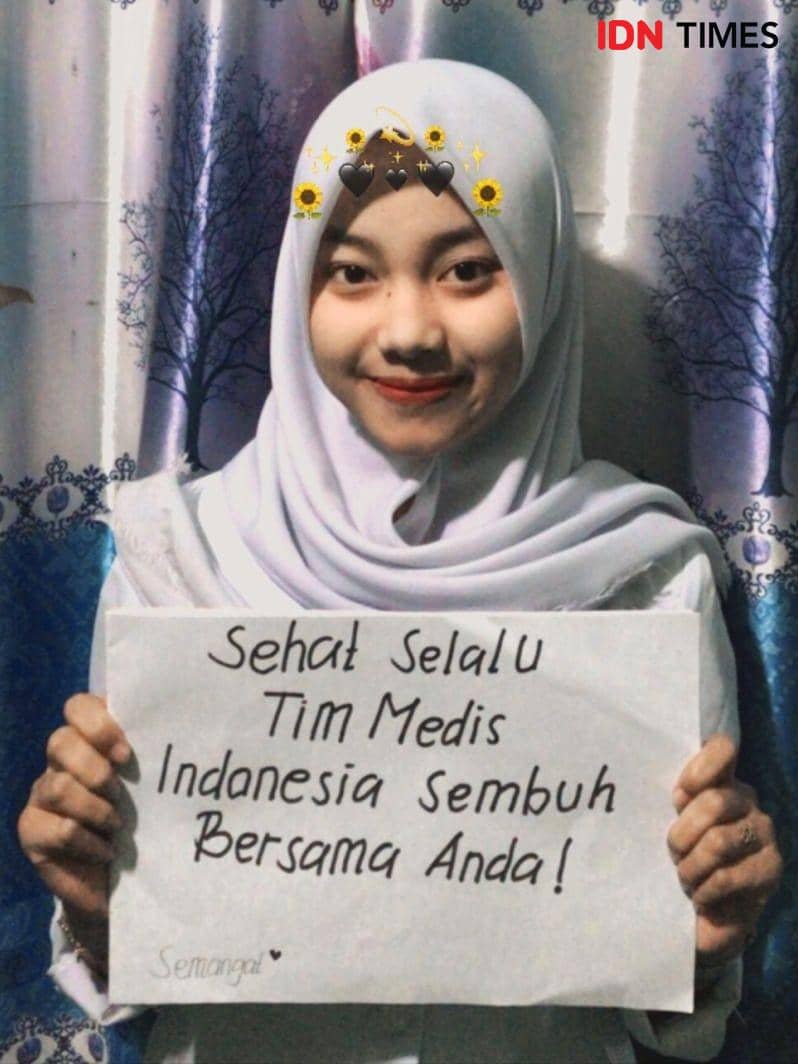 IDN TIMES
Sehat Selalu
Tim Medis
Indonesia Sembuh
Bersama Anda!
Semangat